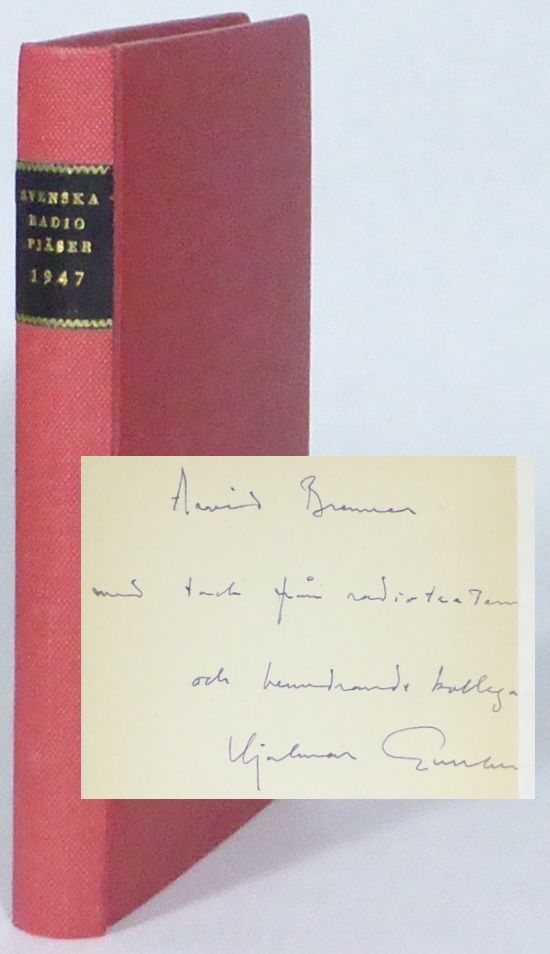 SVENSKA
RADIO
PJÄSER
1947
Arvid Brenner
med tack från radioteatern
och beundrande kollega
Hjalmar